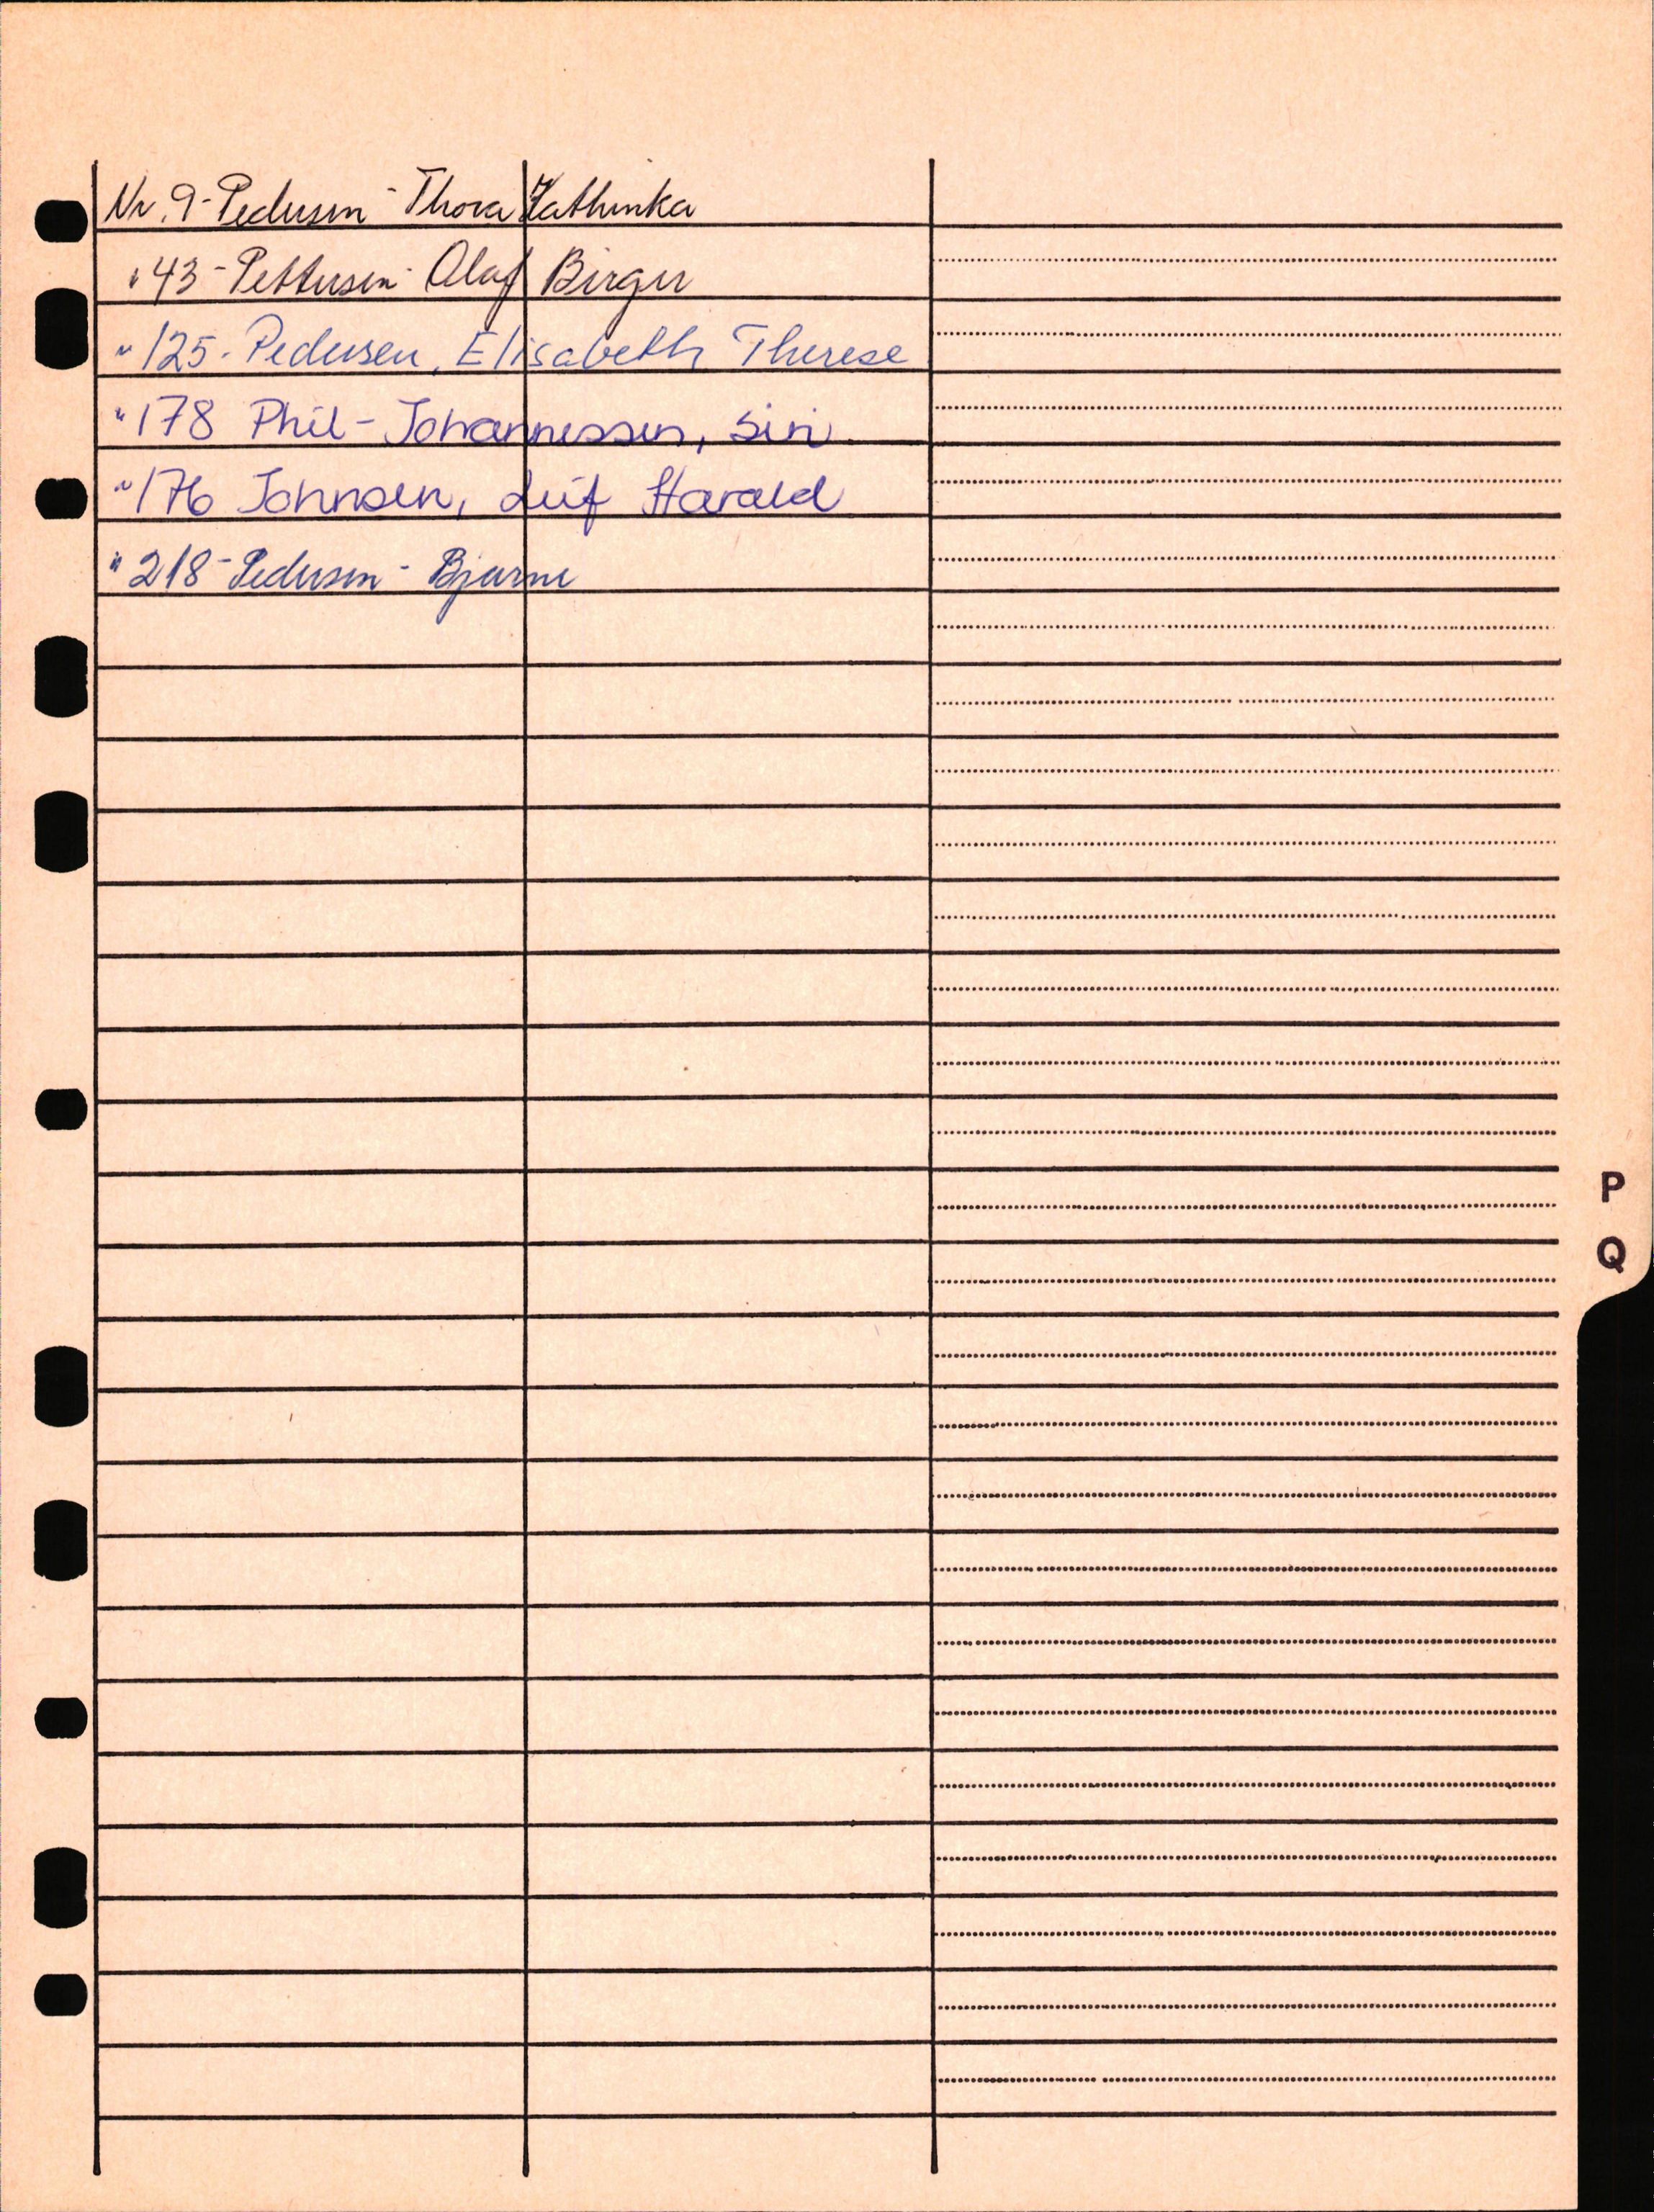 Nr. 9 - Pedersen - Thora Kathinka
" 43 - Pettersen - Olaf Birger
" 125 - Pedersen, Elisabeth Therese
" 178 Phil-Johannessen, Siri
" 176 Johnsen, Leif Harald
" 218 - Pedersen - Bjarne
P
Q